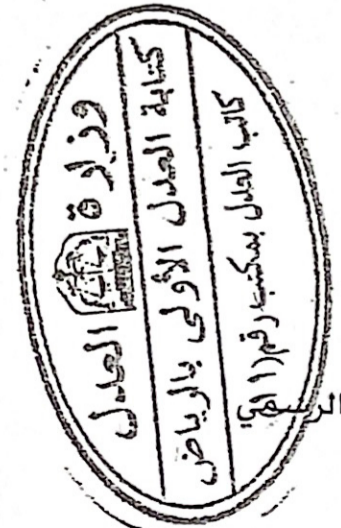 وزارة العدل
كتابة العدل الأولى بالرياض
كاتب العدل بمكتب رقم (١١)
الرسمي